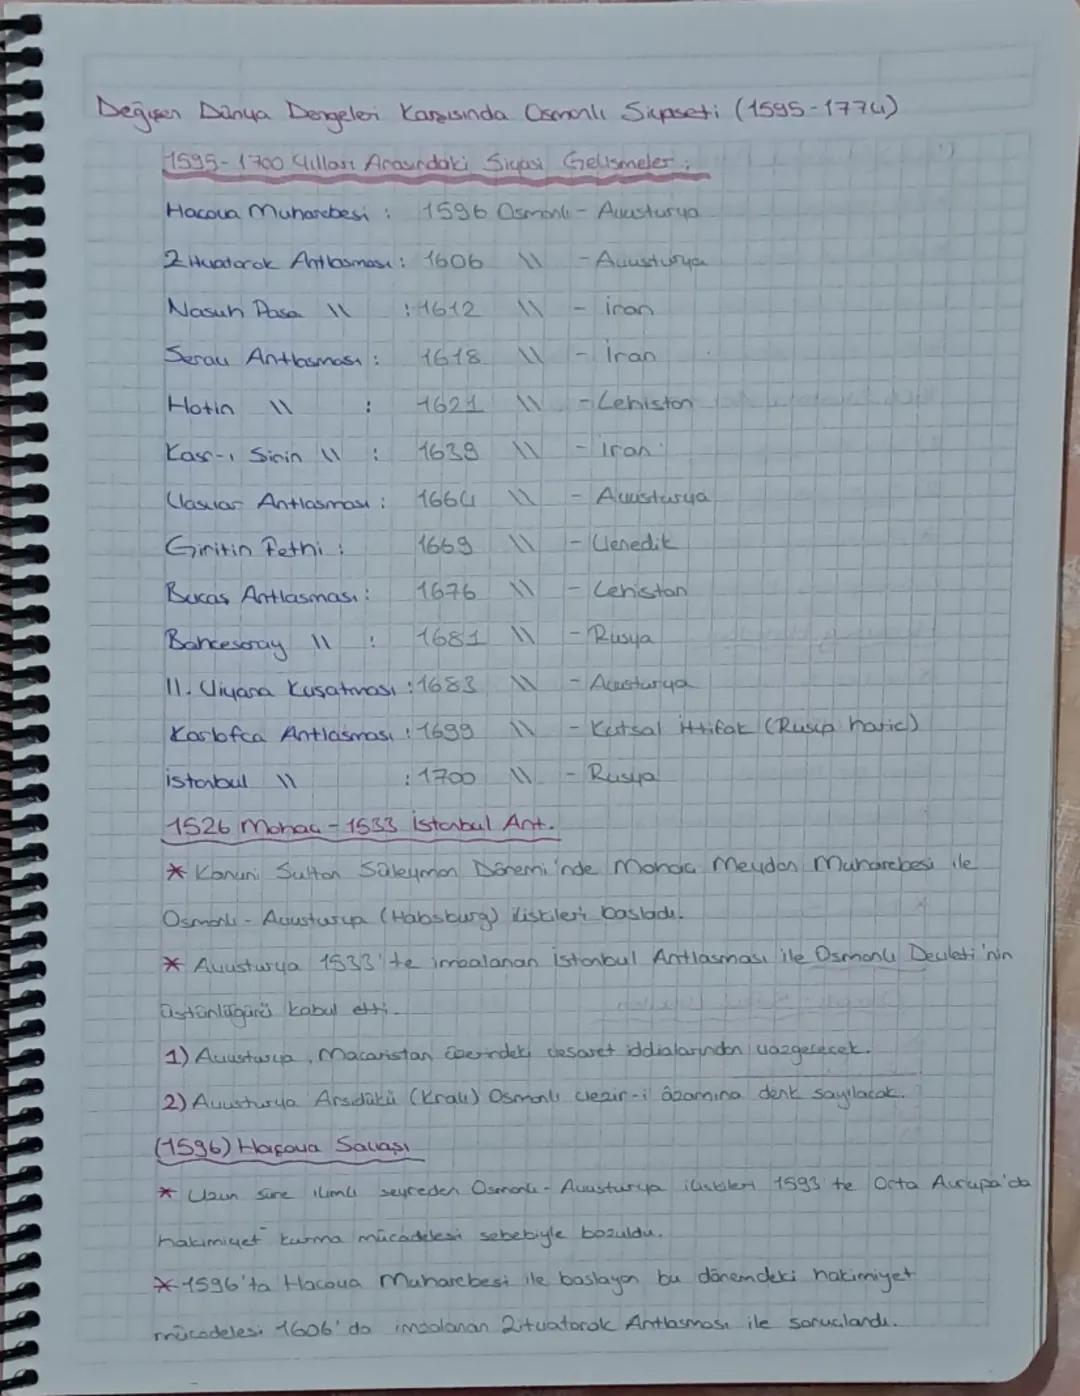 Değişen Dünya Dengeleri Karşısında Osmanlı Siyaseti (1595-1774)
1595-1700 Yılları Arasındaki Siyasi Gelişmeler :
Haçova Muharebesi : 1596 Osmanlı - Avusturya
Zitvatorok Antlaşması : 1606 \\ - Avusturya
Nasuh Paşa \\ : 1612 \\ - İran
Serav Antlaşması : 1618 \\ - İran
Hotin \\ : 1621 \\ - Lehistan
Kasr-ı Şirin \\ : 1639 \\ - İran
Vasvar Antlaşması : 1664 \\ - Avusturya
Giritin Fethi : 1669 \\ - Venedik
Bucaş Antlaşması : 1676 \\ - Lehistan
Bahçesaray \\ : 1681 \\ - Rusya
II. Viyana Kuşatması : 1683 \\ - Avusturya
Karlofça Antlaşması : 1699 \\ - Kutsal İttifak (Rusya hariç)
İstanbul \\ : 1700 \\ - Rusya
1526 Mohaç - 1533 İstanbul Ant.
* Kanuni Sultan Süleyman Dönemi'nde Mohaç Meydan Muharebesi ile
Osmanlı - Avusturya (Habsburg) ilişkileri başladı.
* Avusturya 1533'te imzalanan İstanbul Antlaşması ile Osmanlı Devleti'nin
üstünlüğünü kabul etti.
1) Avusturya, Macaristan üzerindeki vesaret iddialarından vazgeçecek.
2) Avusturya Arşidükü (Kralı) Osmanlı vezir-i âzamına denk sayılacak.
(1596) Haçova Savaşı
* Uzun süre ılımlı seyreden Osmanlı - Avusturya ilişkileri 1593'te Orta Avrupa'da
hakimiyet kurma mücadelesi sebebiyle bozuldu.
* 1596'ta Haçova Muharebesi ile başlayan bu dönemdeki hakimiyet
mücadelesi 1606'da imzalanan Zitvatorok Antlaşması ile sonuçlandı.